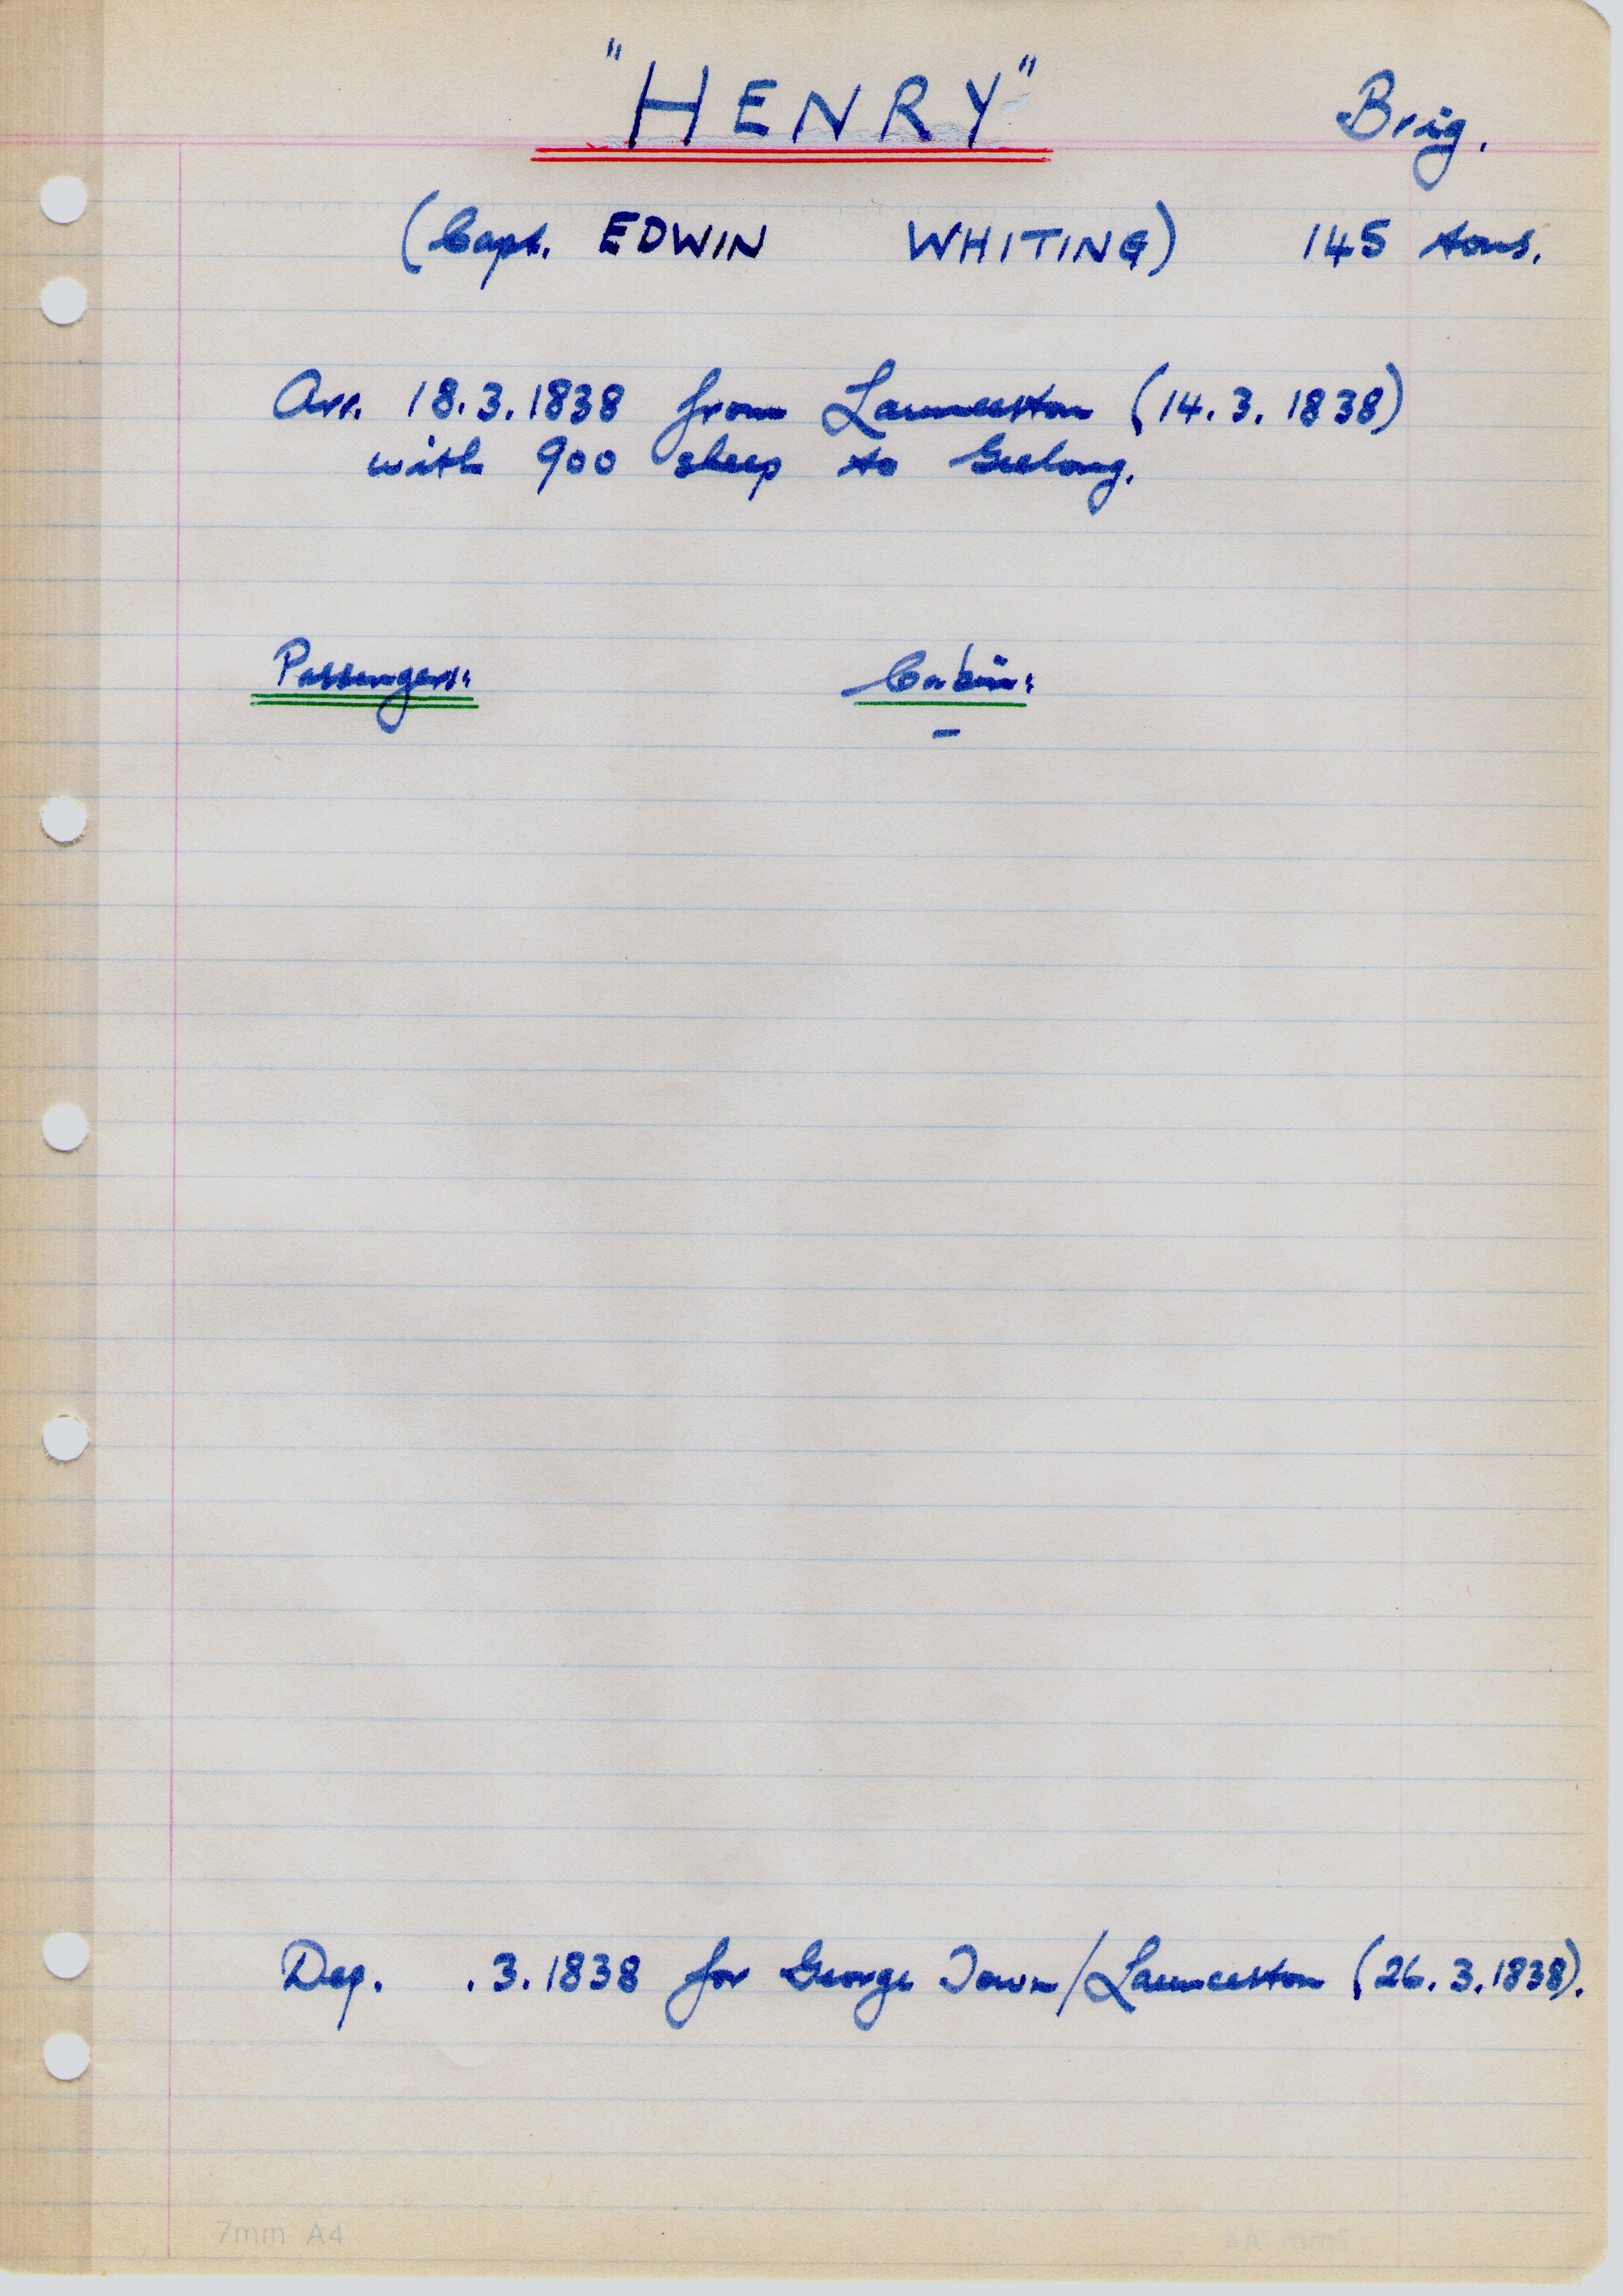 "HENRY" Brig.
(Capt. EDWIN WHITING) 145 tons.
Arr. 18.3.1838 from Launceston (14.3.1838)
with 900 sheep to Geelong.
Passengers: Cabin:
-
Dep. .3.1838 for George Town/Launceston (26.3.1838).
7mm A4